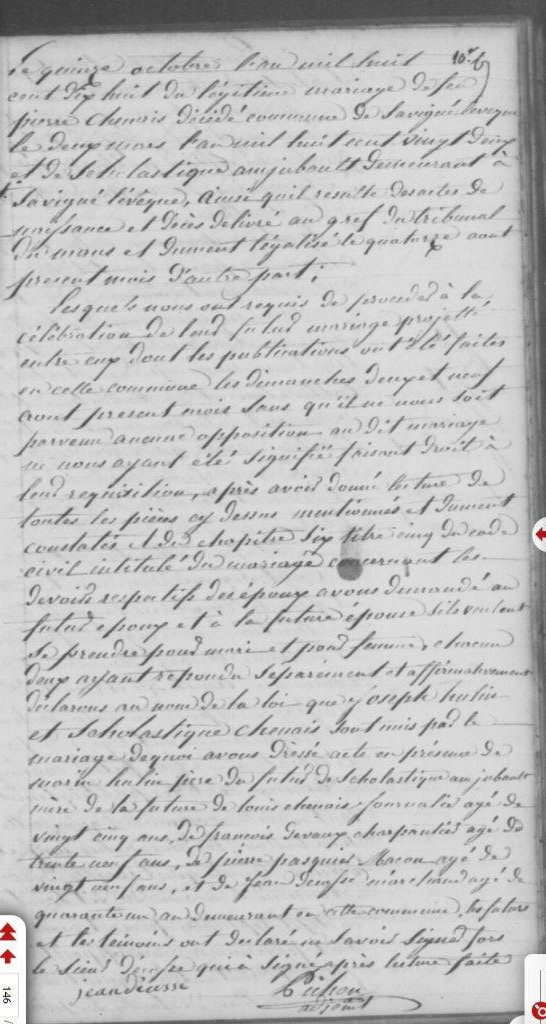 le quinze octobre l'an mil huit
cent dix huit du légitime mariage de feu
pierre Chenais décédé commune de Savigné levêque
le deux mars l'an mil huit cent vingt deux
et de Scholastique amjubault demeurant à
Savigné l'évêque, Ainsi quil resulte des actes de
naissance et décès delivré au gref du tribunal
du mans et dument légalisé le quatorze aout
present mois d'autre part ;
lesquels nous ont requis de proceder à la
célébration de leur futur mariage projetté
entre eux dont les publications ont été faites
en cette commune les dimanches deux et neuf
aout present mois sans qu'il ne nous soit
parvenu aucune opposition au dit mariage
ne nous ayant été signifié faisant droit à
leur requisition, après avoir donné lecture de
toutes les pièces cy dessus mentionnés et dument
constatés et du chapitre six titre cinq du code
civil intitulé du mariage concernant les
devoirs respectifs des époux avons demandé au
futur epoux et à la future épouse s'ils veulent
se prendre pour mari et pour femme, chacun
deux ayant repondu separément et affirmativement
declarons au nom de la loi que joseph hulin
et Scholastique Chenais sont unis par le
mariage de quoi avons dressé acte en présence de
marin hulin père du futur de Scholastique amjubault
mère de la future de louis chenais journalier agé de
vingt cinq ans, de francois devaux charpantier agé de
trente neuf ans, de pierre pasquier Macon agé de
vingt neuf ans, et de jean marchand agé de
quarante un an demeurant en cette commune, les futurs
et les témoins ont declaré ne savoir signer fors
le sieur qui à signé après lecture faite
adjoint
146